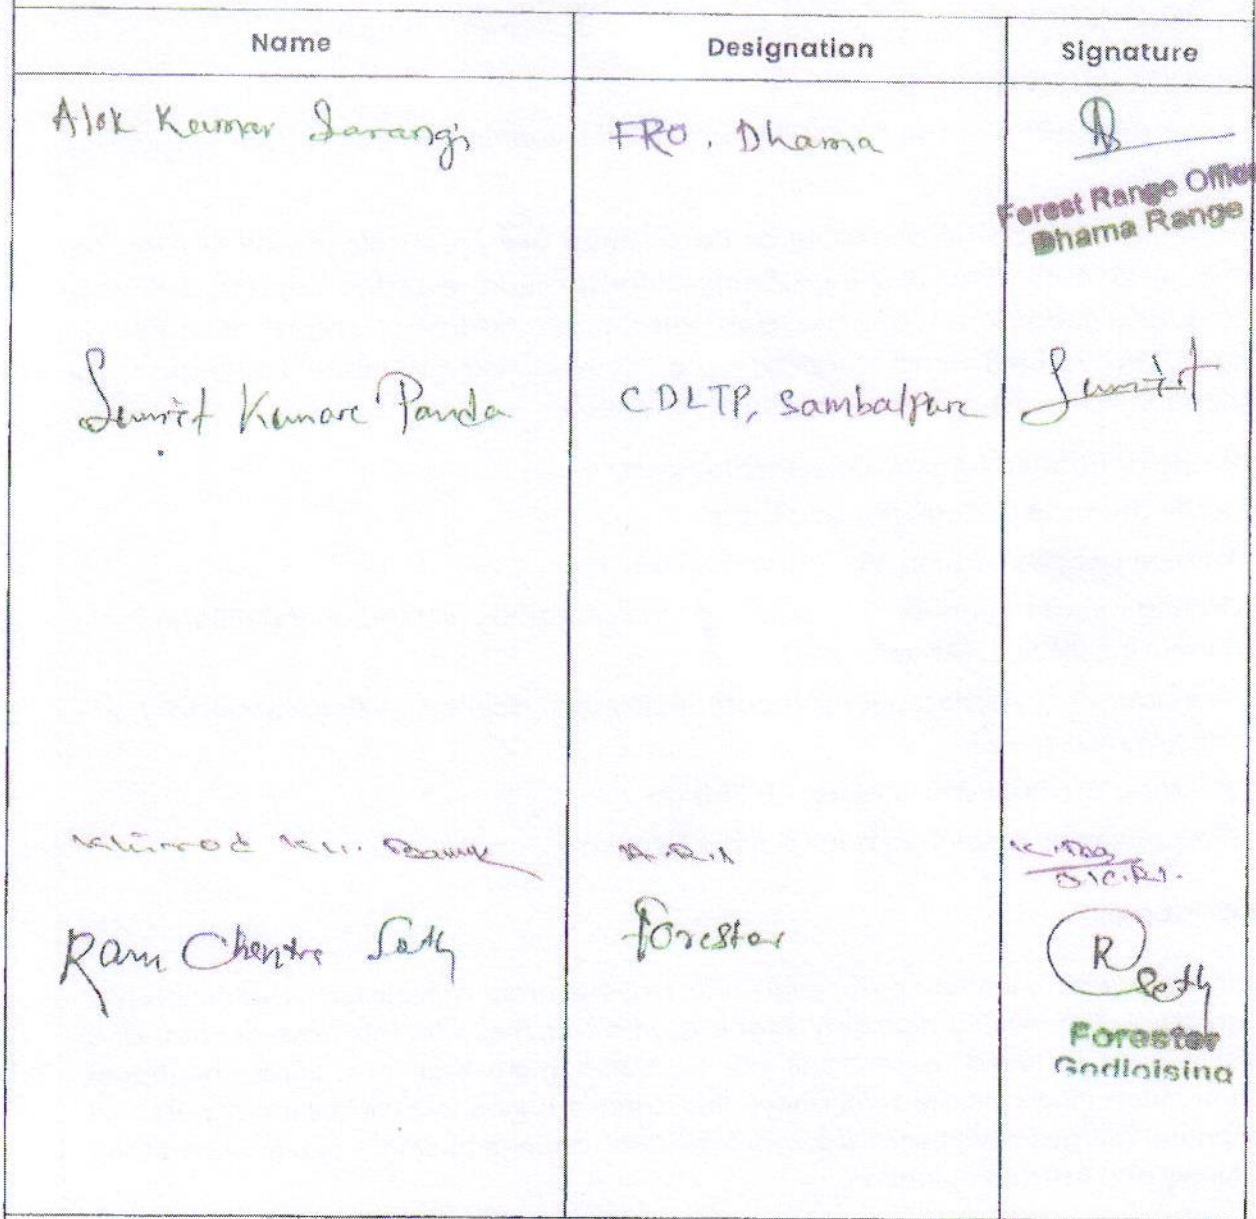 Name Designation Signature
Alok Kumar Sarangi FRO, Dhama
Forest Range Officer
Dhama Range
Sumit Kumar Panda CDLTP, Sambalpur Sumit
Khirod Ku.
Ram Chentre Seth Forester R Seth
Forester
Godloising